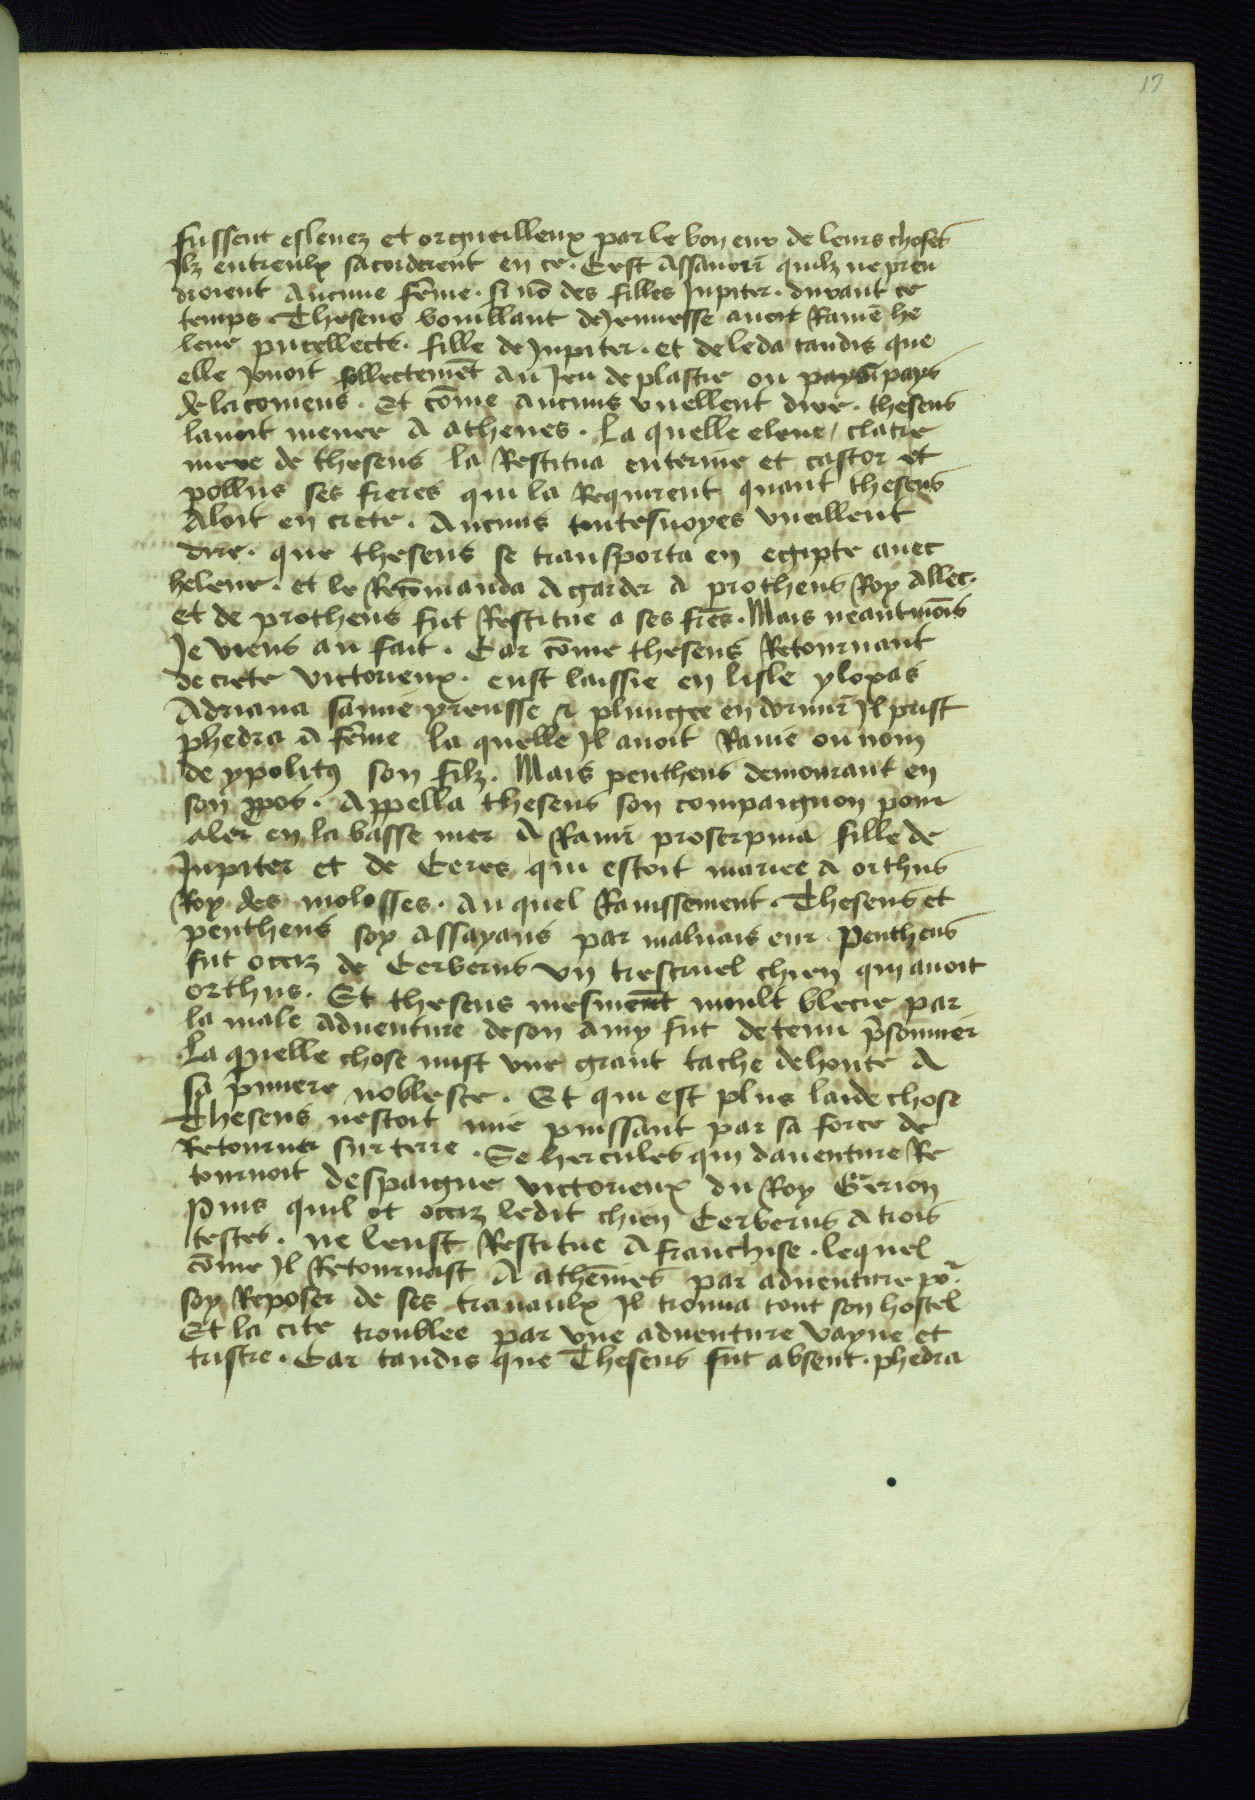 17
fussent esleuez et orgueilleux par le bon eur de leurs choses
Ilz entreulx sacorderent en ce . Cest Assauoir quilz ne pren
droient Aucune fēme . si nō des filles Jupiter . durant ce
temps . Theseus bouillant de Jeunesse auoit Rauie he
lene pucellecte . fille de Jupiter . et de leda tandis que
elle Jouoit follectemēt Au Jeu de plastre ou pays
de lacomeus . Et cōme Aucuns vuellent dire . theseus
lauoit menee A athenes . La quelle elene / clatre
mere de theseus la Restitua enterine et castor et
pollus ses freres qui la Requirent quant theseus
Aloit en crete . Aucuns toutesuoyes vueillent
dire . que theseus se transporta en egipte auec
helene . et le Recōmanda A garder A protheus Roy Allec .
et de protheus fut Restitue a ses frēs . Mais neantmōis
Je viens au fait . Car cōme theseus Retournant
de crete victorieux . eust laissie en lisle ylopas
Adriana samie yreusse & plungee en dormir Il prist
phedra A fēme la quelle Il auoit Rauie ou nom
de ypolitꝯ son filz . Mais pentheus demourant en
son ppos . Appella theseus son compaignon pour
aler en la basse mer A Rauir proserpina fille de
Jupiter et de Ceres qui estoit mariee A orthus
Roy des molosses . Au quel Rauissement . Theseus et
pentheus soy Assayans par maluais eur . Pentheus
fut occiz de Cerberus vn trescruel chien qui auoit
orthus . Et theseus mesment moult blecie par
la male Aduenture de son Amy fut detenu p̄sonnier
La quelle chose mist vne grant tache de honte A
sa p̄miere noblesce . Et qui est plus laide chose
Theseus nestoit mie puissant par sa force de
Retourner sur terre . Se hercules qui dauenture Re
tournoit despaigne victorieux du Roy Gerion
Puis quil ot occiz ledit chien Cerberus A trois
testes . ne leust Restitue A franchise . lequel
cōme Il Retournast A athēnes par aduenture po᷑ .
soy Reposer de ses trauaulx Il trouua tout son hostel
Et la cite troublee par vne aduenture vayne et
tristre . Car tandis que Theseus fut absent . phedra